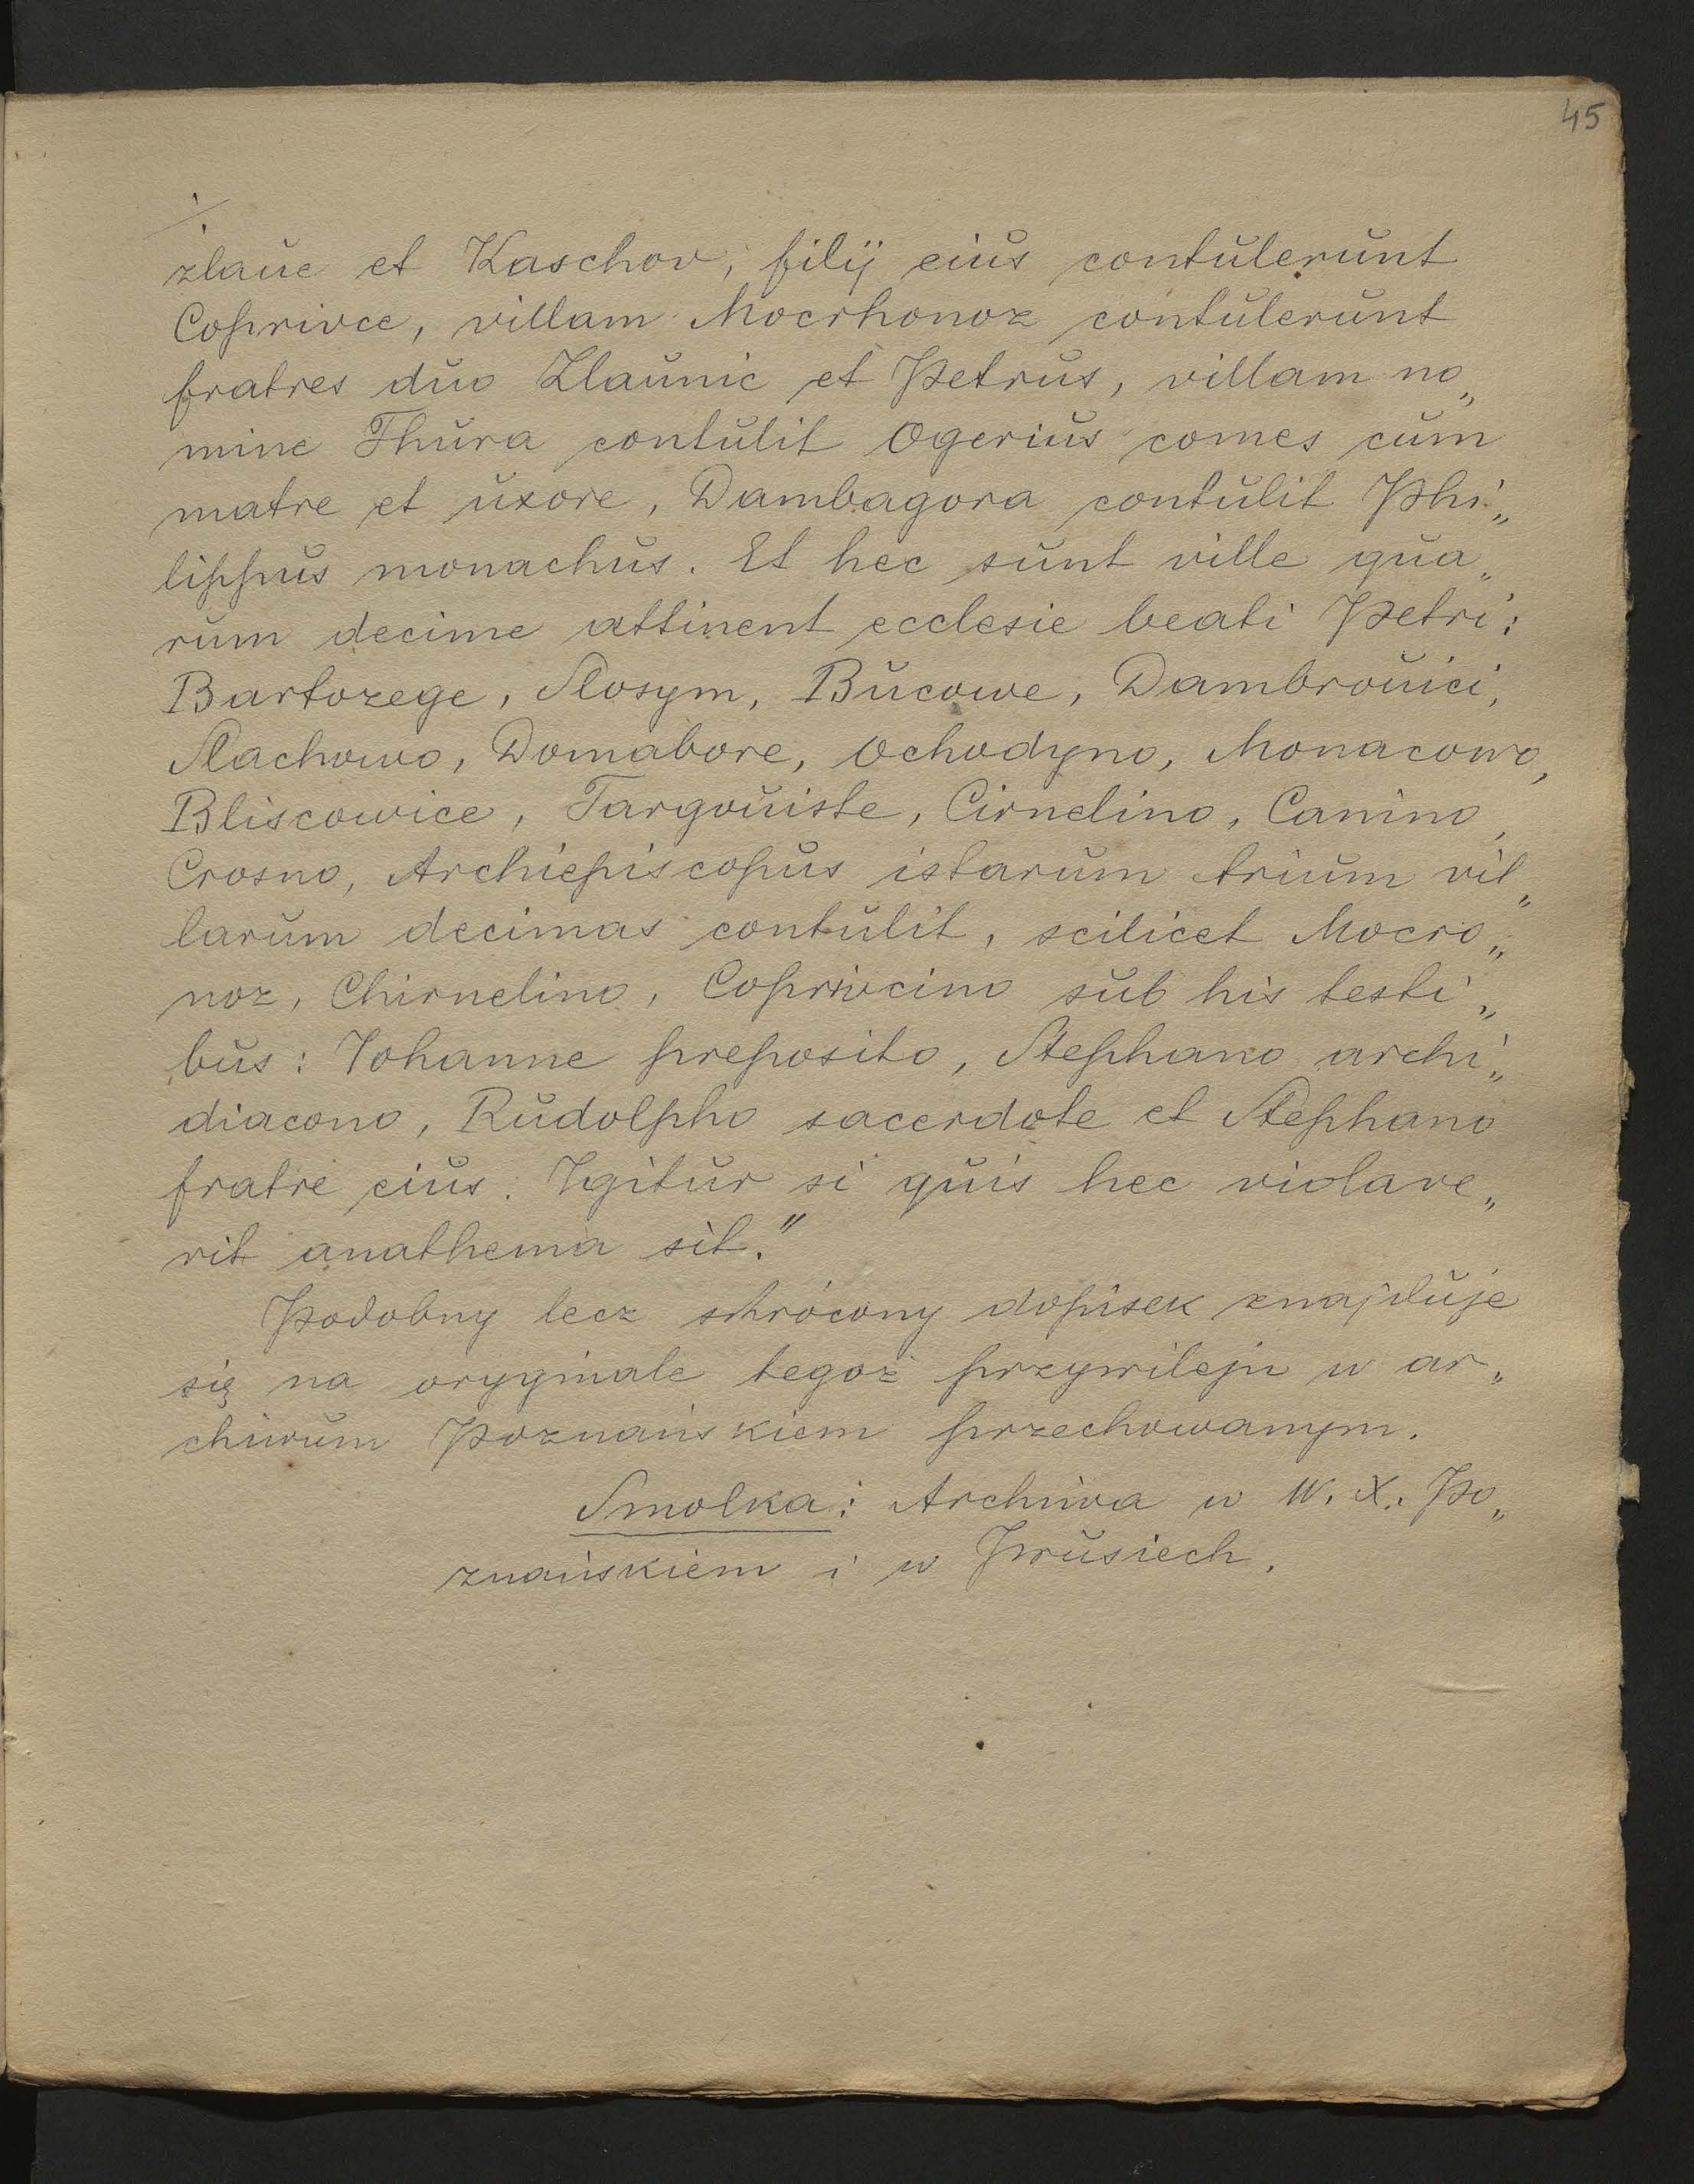 45
./.
zlaue et Kaschov, filij eius contulerunt
Coprivce, villam Mocrhonoz contulerunt
fratres duo Zlaunic et Petrus, villam no„
mine Thura contulit Ogerius comes cum
matre et uxore, Dambagora contulit Phi„
lippus monachus. Et hec sunt ville qua„
rum decime attinent ecclesie beati Petri:
Bartozege, Slosym, Bucowe, Dambrouici,
Slachowo, Domabore, Ochodyno, Monacowo,
Bliscowice, Targouiste, Cirnelino, Canino,
Crosno, Archiepiscopus istarum trium vil„
larum decimas contulit, scilicet Mocro„
noz, Chirnelino, Coprivcino sub his testi„
bus: Iohanne preposito, Stephano archi„
diacono, Rudolpho sacerdote et Stephano
fratre eius. Igitur si quis hec violave„
rit anathema sit."
Podobny lecz skrócony dopisek znajduje
się na oryginale tegoż przywileju w ar„
chiwum Poznańskiem przechowanym.
Smolka: Archiwa w W. X. Po„
znańskiem i w Prusiech.